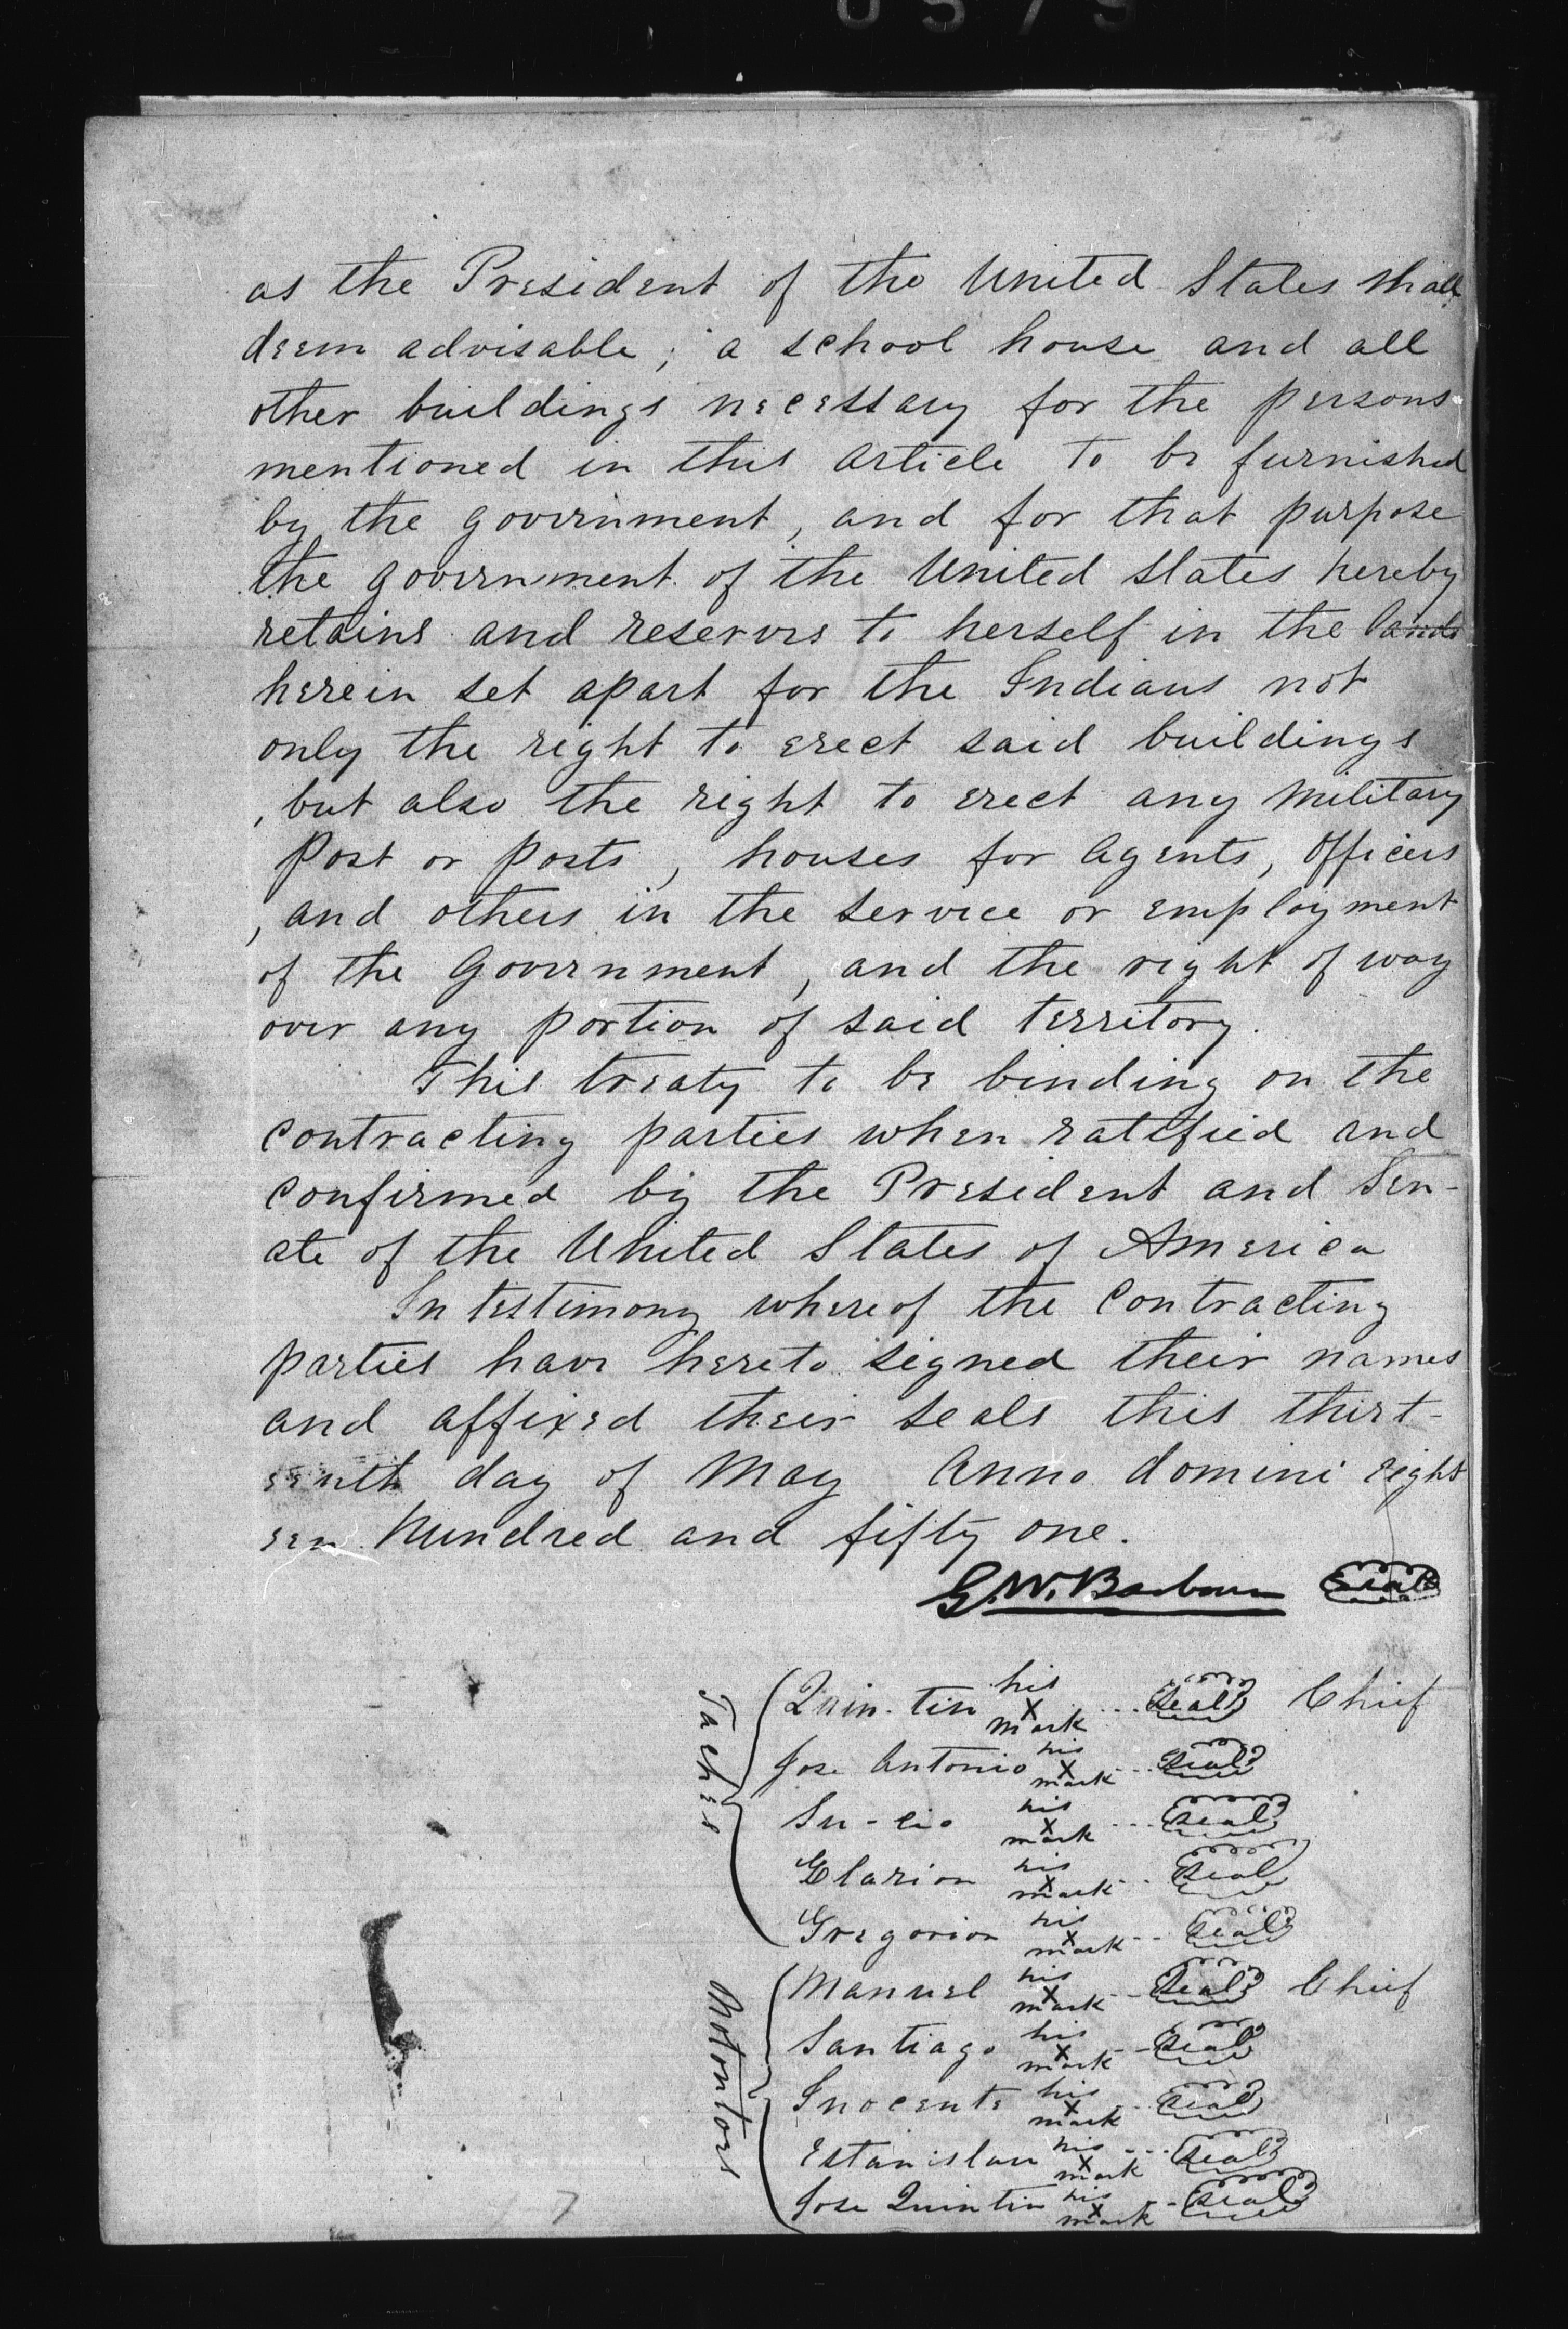 as the President of the United States shall
deem advisable; a school house and all
other buildings necessary for the persons
mentioned in this article to be furnished
by the government, and for that purpose
the government of the United States hereby
retains and reserves to herself in the lands
herein set apart for the Indians not
only the right to erect said buildings
, but also the right to erect any military
post or posts, houses for agents, officers
, and others in the service or employment
of the Government, and the right of way
over any portion of said territory.
This treaty to be binding on the
contracting parties when ratified and
confirmed by the President and Sen-
ate of the United States of America
In testimony whereof the contracting
parties have hereto signed their names
and affixed their seals this thirt-
eenth day of May Anno domini eight
een hundred and fifty one.
G. W. Barbour Seal
Taches
Quin-tin his X mark ... Seal Chief
Jose Antonio his X mark ... Seal
Su-cio his X mark ... Seal
Elarion his X mark .. Seal
Gregorion his X mark -- Seal
Notontors
Manuel his X mark - Seal Chief
Santiago his X mark -- Seal
Inocente his X mark .. Seal
Estanislau his X mark ... Seal
Jose Quintin his X mark -- Seal
7